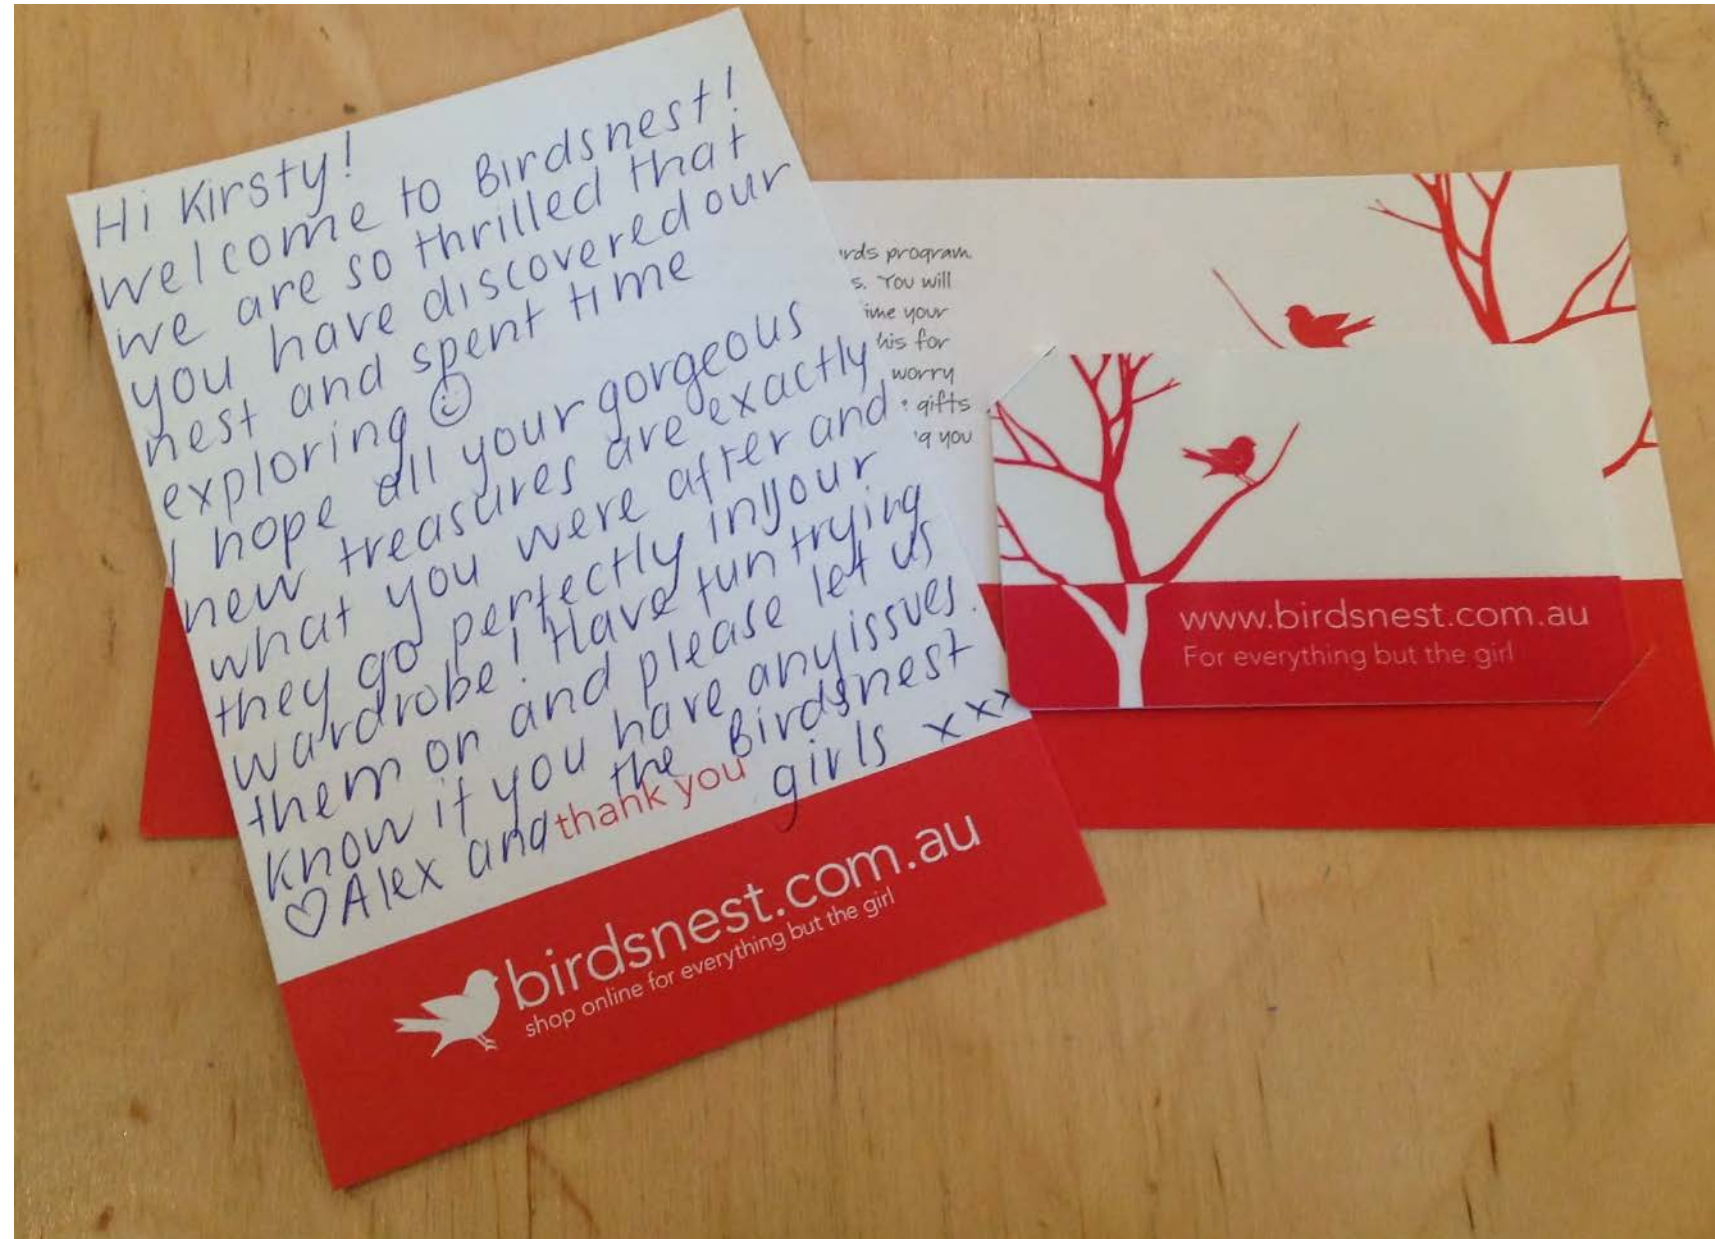 Hi Kirsty!
welcome to Birdsnest!
we are so thrilled that
you have discovered our
nest and spent time
exploring
I hope all your gorgeous
new treasures are exactly
what you were after and
they go perfectly in your
wardrobe! Have fun trying
them on and please let us
know if you have any issues.
♡ Alex and the Birdsnest
girls xxx
thank you
birdsnest.com.au
shop online for everything but the girl
program.
You will
your
for
worry
gifts
you
www.birdsnest.com.au
For everything but the girl